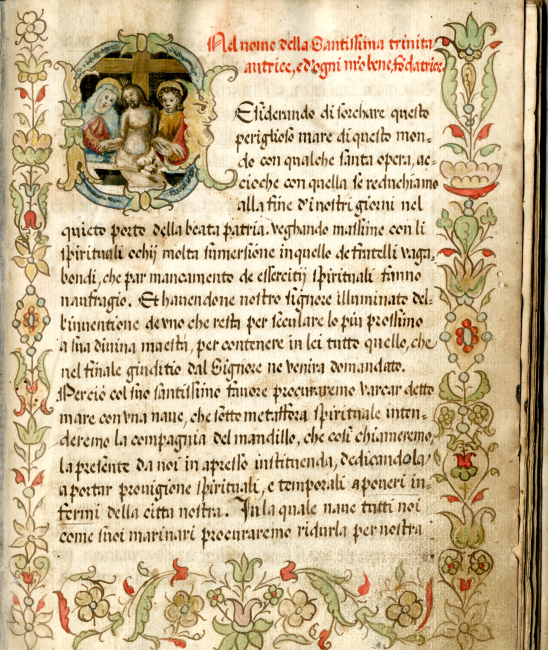 Nel nome della Santissima trinita
autrice, ed'ogni nr̃o bene, fõdatrice.
Esiderando di sorchare questo
periglioso mare di questo mon=
do con qualche santa opera, ac=
cioche con quella se reduchiamo
alla fine d'i nostri giorni nel
quieto porto della beata patria. veghando massime con li
spirituali ochij molta sumersione in quello de fratelli vaga=
bondi, che par mancamento de essercitij spirituali fanno
naufragio. Et havendone nostro signore illuminato del=
l'inventione de vno che resta per seculare lo piu prossimo
a sua divina maestà, per contenere in lei tutto quello, che
nel finale giuditio dal Signore ne venira domandato.
Perciò col suo santissimo favore procuraremo varcar detto
mare con vna nave, che sotto metaffora spirituale inten=
deremo la compagnia del mandillo, che così chiameremo
la presente da noi in apresso instituenda, dedicandola
a portar provigione spirituali, e temporali a poveri in=
fermi della citta nostra. In la quale nave tutti noi
come suoi marinari procuraremo ridurla per nostra